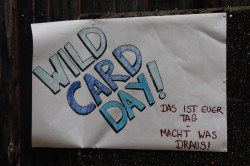 WILD
CARD
DAY!
DAS IST EUER
TAG
-
MACHT WAS
DRAUS!